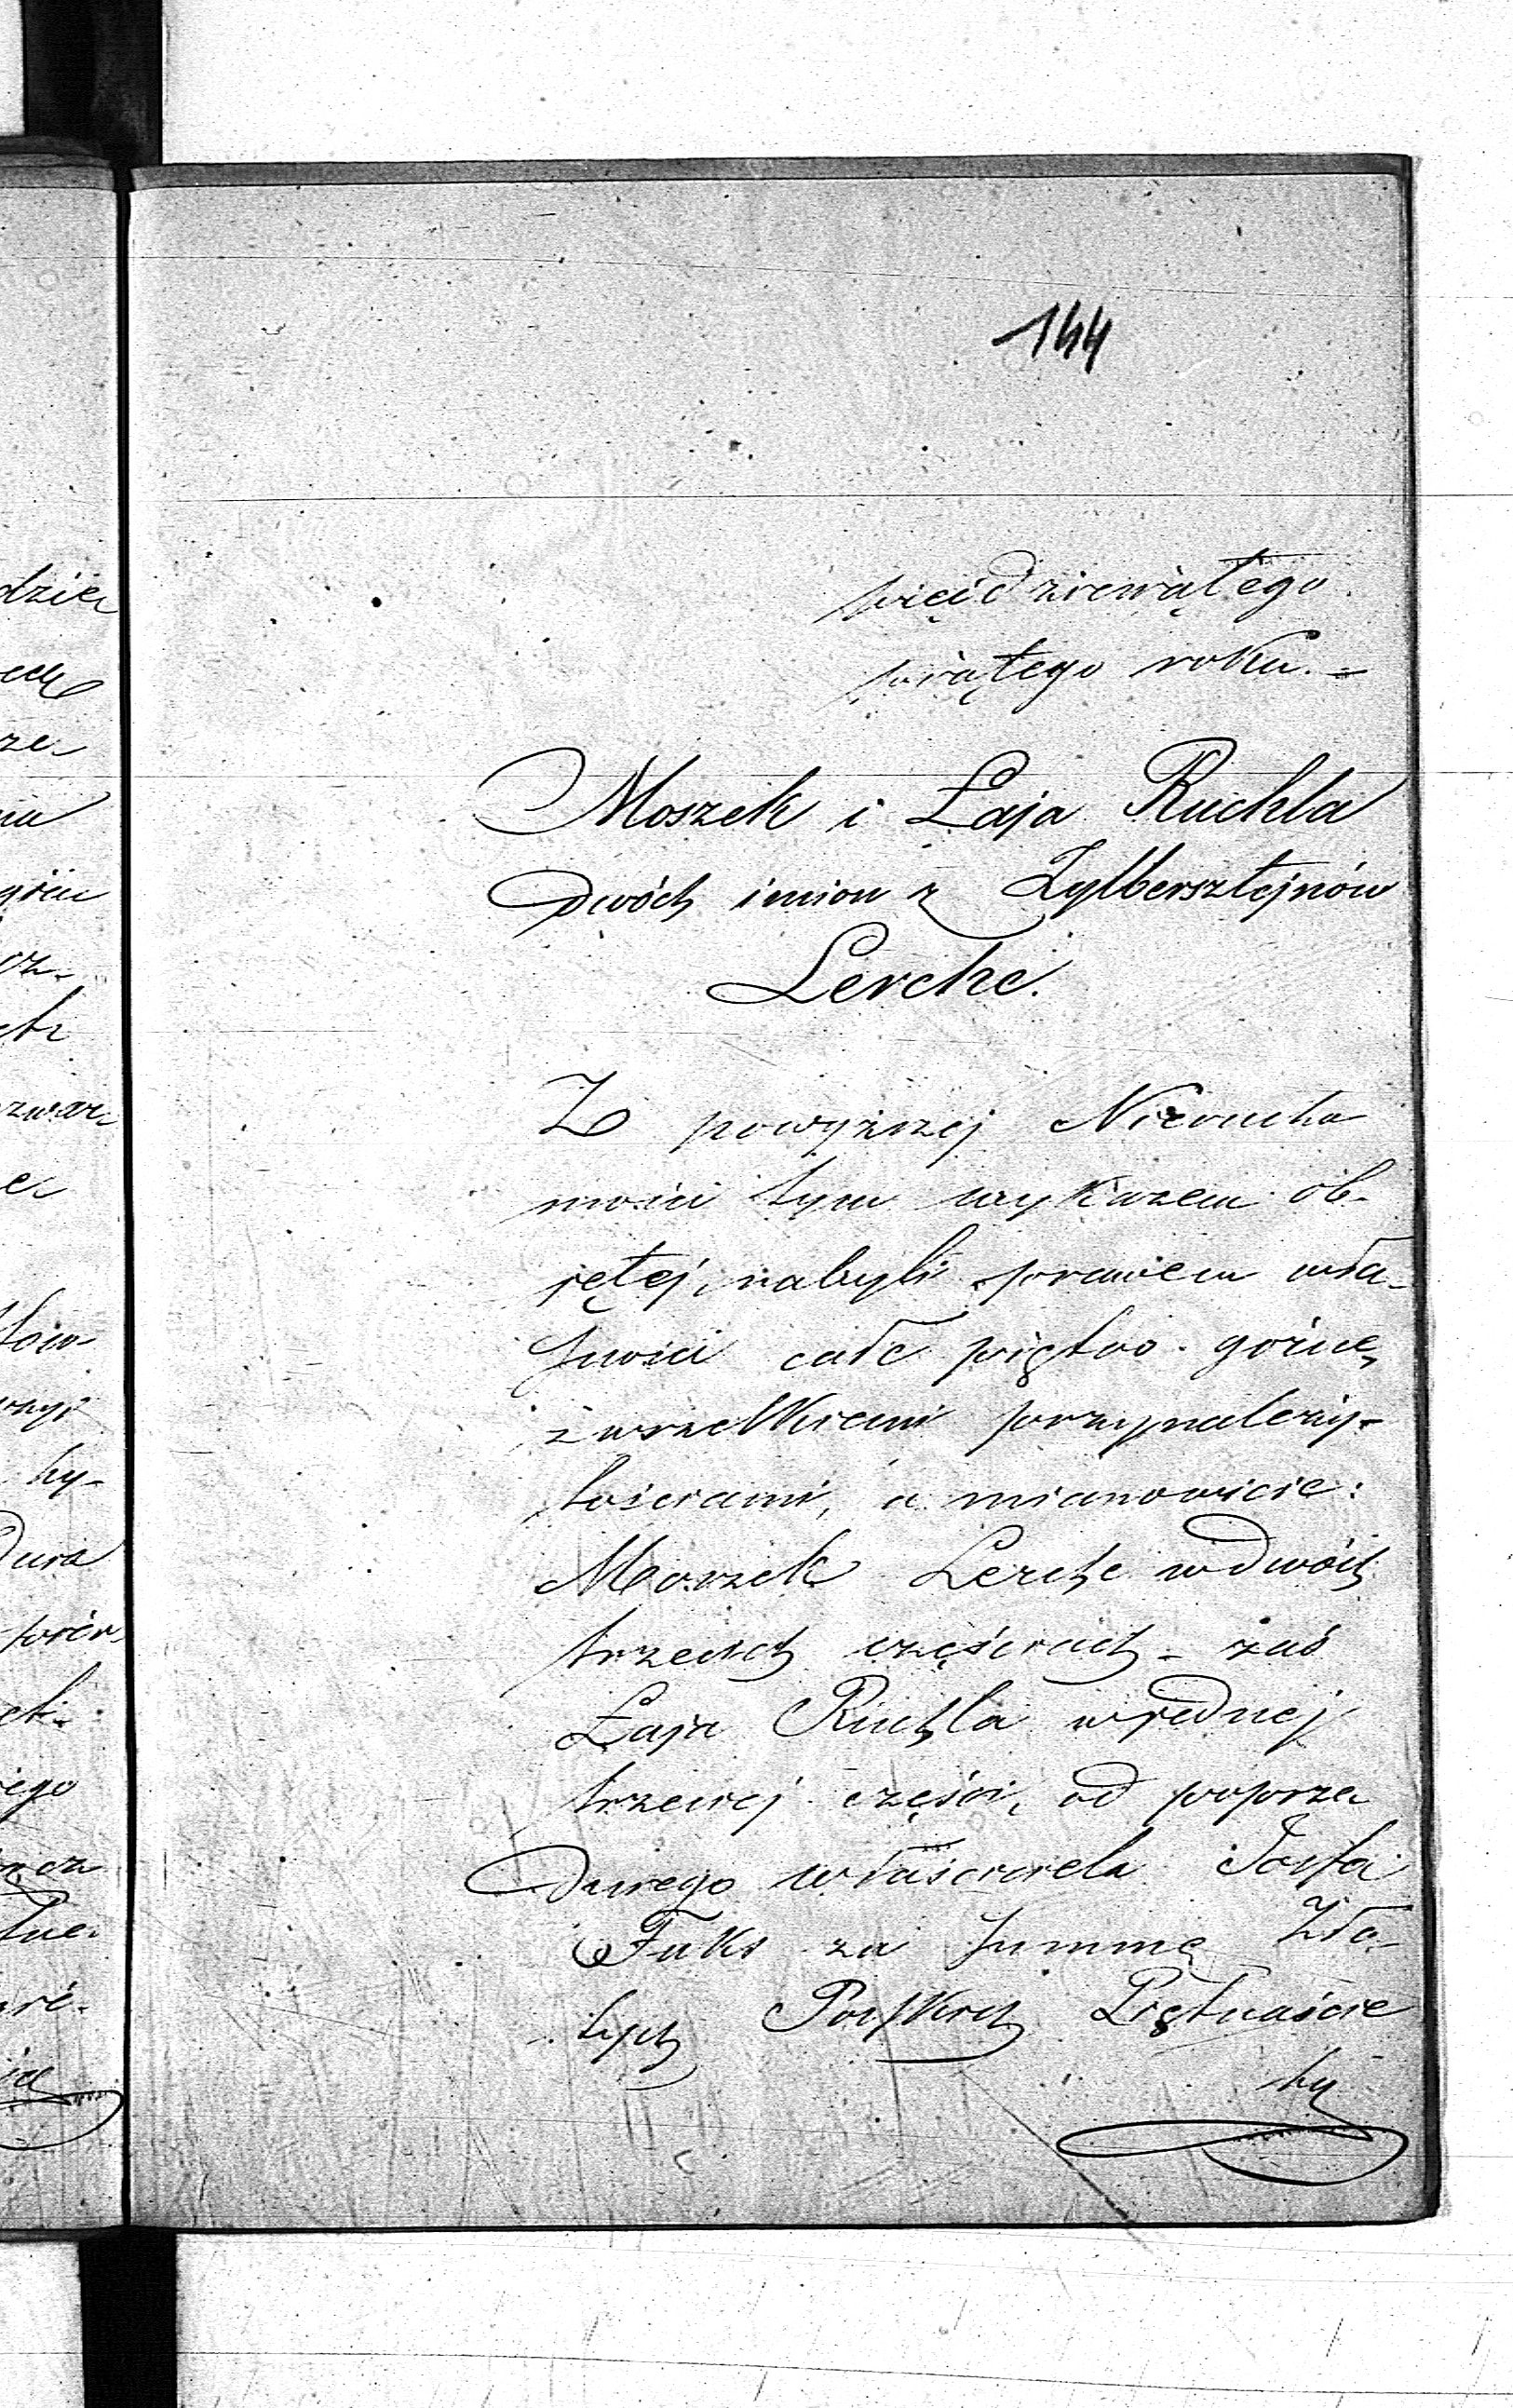 144
pięćdziesiątego
piątego roku. =
Moszek i Łaja Ruchla
dwóch imion z Zylbersztejnów
Lerche.
Z powyższej Nierucho
mości tym wykazem ob-
jętej, nabyli prawem wła-
sności całe piętro górne,
z wszelkiemi przynależy-
tościami, a mianowicie:
Moszek Lerche w dwóch
trzecich częściach - zaś
Łaja Ruchla w jednej
trzeciej części, od poprze-
dniego właściciela Josfa
Fuks za summę Zło-
tych Polskich Piętnaście
ty